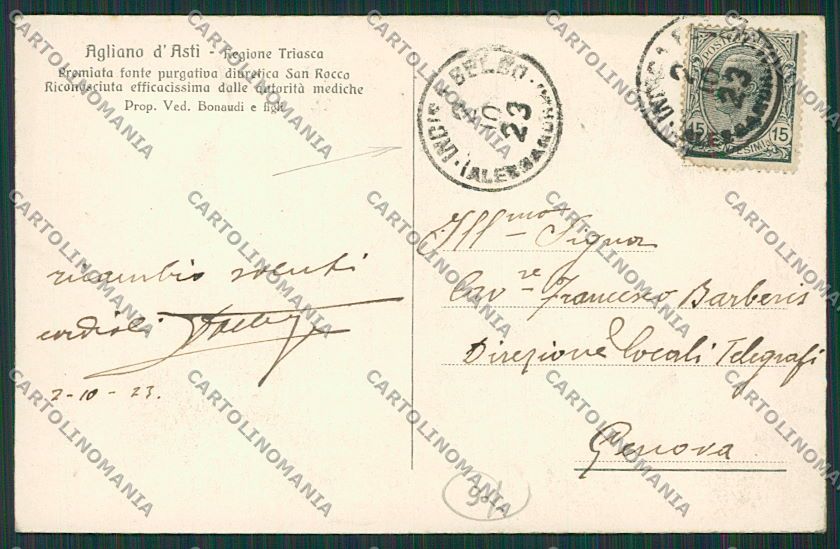 Agliano d'Asti - Regione Triasca
Premiata fonte purgativa diuretica San Rocco
Riconosciuta efficacissima dalle autorità mediche
Prop. Ved. Bonaudi e figli
ricambio saluti
cordiali
2-10-23.
BELBO
2 10 23
(ALESSANDRIA)
POSTE
2 10 23
15 15
CENTESIMI
Ill.mo Signor
Cav.re Francesco Barberis
Direzione locali Telegrafi
Genova
CARTOLINOMANIA